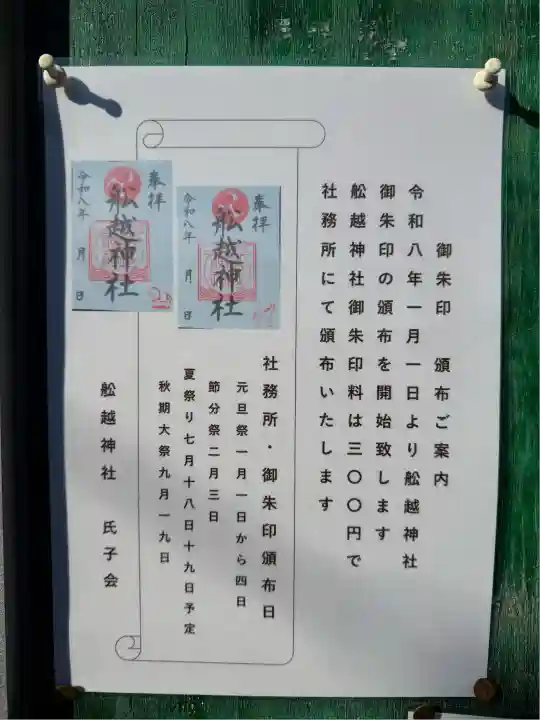 御朱印　頒布ご案内
令和八年一月一日より舩越神社
御朱印の頒布を開始致します
舩越神社御朱印料は三〇〇円で
社務所にて頒布いたします
社務所・御朱印頒布日
元旦祭一月一日から四日
節分祭二月三日
夏祭り七月十八日十九日予定
秋期大祭九月一九日
舩越神社　氏子会
奉拝
舩越神社
令和八年　月　日
奉拝
舩越神社
令和八年　月　日